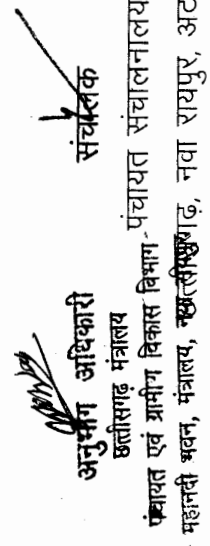 अनुभाग अधिकारी
छत्तीसगढ़ मंत्रालय
पंचायत एवं ग्रामीण विकास विभाग
महानदी भवन, मंत्रालय,
संचालक
पंचायत संचालनालय
नवा रायपुर, अट